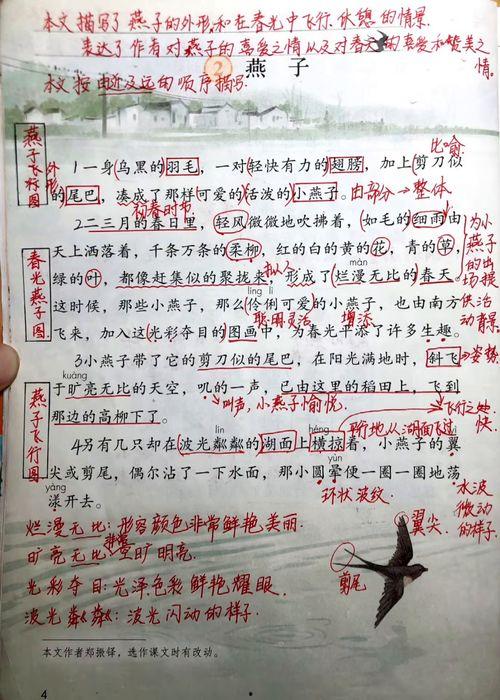 本文描写了燕子的外形,和在春光中飞行、休憩的情景.
表达了作者对燕子的喜爱之情以及对春天的喜爱和赞美之情.
② 燕子
本文按由近及远的顺序描写.
燕子飞行图
外形
比喻
1一身乌黑的羽毛，一对轻快有力的翅膀，加上剪刀似
的尾巴，凑成了那样可爱的活泼的小燕子。由部分→整体
初春时节
2二三月的春日里，轻风微微地吹拂着，如毛的细雨由
天上洒落着，千条万条的柔柳，红的白的黄的花，青的草，
春光燕子图
拟人
màn
绿的叶，都像赶集似的聚拢来，形成了烂漫无比的春天。
líng lì
这时候，那些小燕子，那么伶俐可爱的小燕子，也由南方
聪明灵活
增添
飞来，加入这光彩夺目的图画中，为春光平添了许多生趣。
为小燕子的出场提供活动背景
3小燕子带了它的剪刀似的尾巴，在阳光满地时，斜飞
→姿势
kuàng
于旷亮无比的天空，叽的一声，已由这里的稻田上，飞到
燕子飞行图
那边的高柳下了。
叫声,小燕子愉悦.
飞行之快
平行地从湖面飞过
lín
héng
4另有几只却在波光粼粼的湖面上横掠着，小燕子的翼
yùn
尖或剪尾，偶尔沾了一下水面，那小圆晕便一圈一圈地荡
yàng
漾开去。
环状波纹
水波微动的样子.
烂漫无比:形容颜色非常鲜艳美丽.
翼尖
旷亮无比:非常空旷明亮.
光彩夺目:光泽,色彩鲜艳耀眼.
剪尾
波光粼粼:波光闪动的样子.
本文作者郑振铎，选作课文时有改动。
4